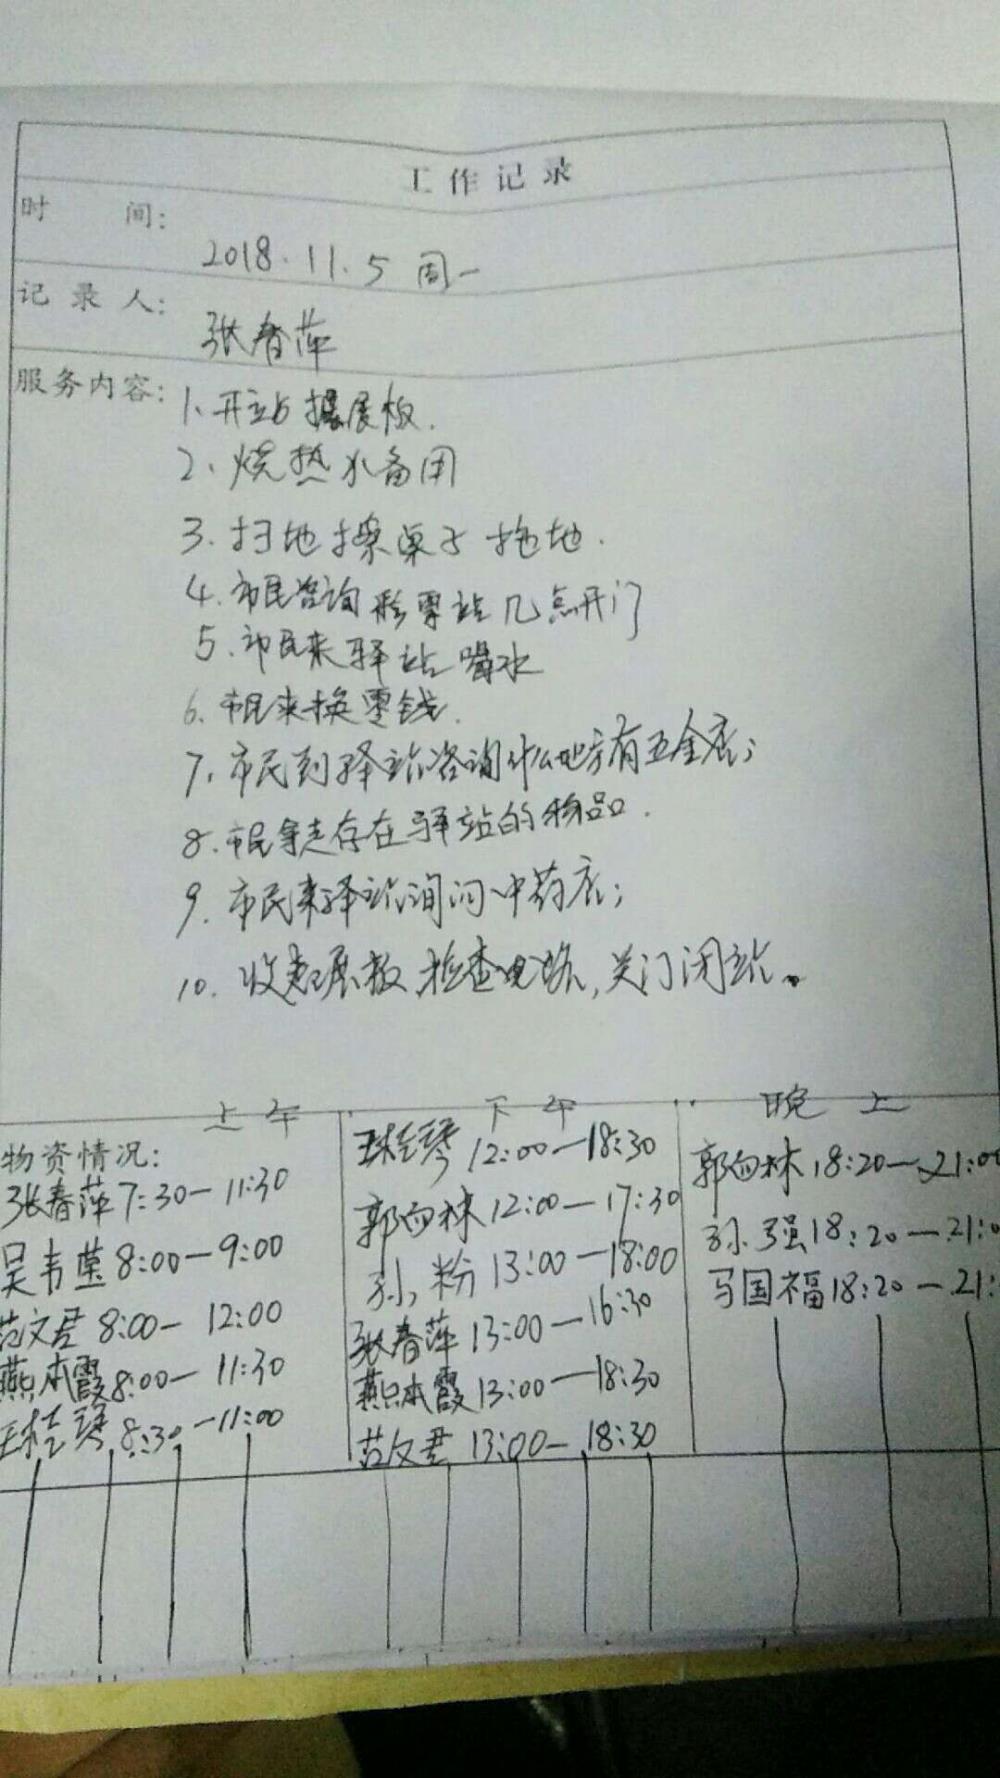 工作记录
时 间:
2018.11.5 周一
记录人:
张春萍
服务内容:
1、开站摆展板.
2、烧热水备用
3.扫地擦桌子拖地.
4.市民咨询彩票站几点开门
5.市民来驿站喝水
6.市民来换零钱.
7.市民到驿站咨询什么地方有五金店;
8.市民拿走存在驿站的物品.
9.市民来驿站询问中药店;
10.收起展板,检查电路,关门闭站。
上午 下午 晚上
物资情况:
张春萍 7:30—11:30
吴韦莹 8:00—9:00
范文君 8:00—12:00
燕本霞 8:00—11:30
王桂琴 8:30—11:00
王桂琴 12:00—18:30
郭向林 12:00—17:30
孙粉 13:00—18:00
张春萍 13:00—16:30
燕本霞 13:00—18:30
范文君 13:00—18:30
郭向林 18:20—21:00
孙强 18:20—21:0
马国福 18:20—21: